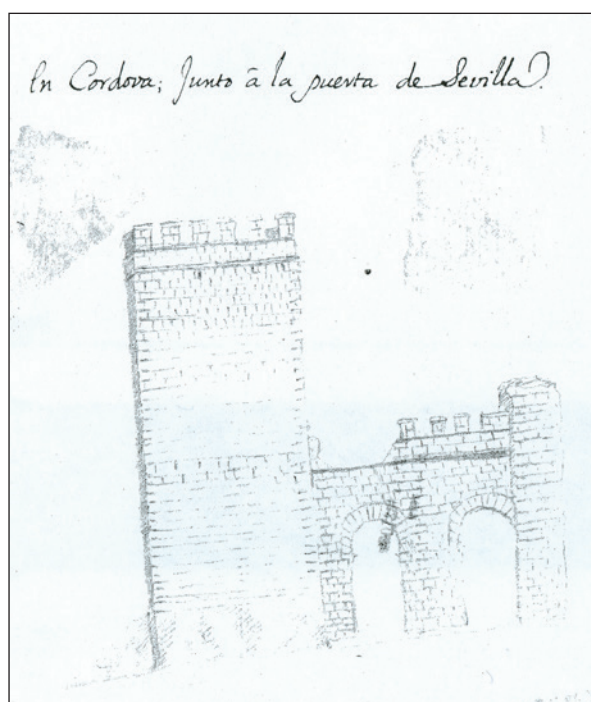 En Cordova; Junto â la puerta de Sevilla.